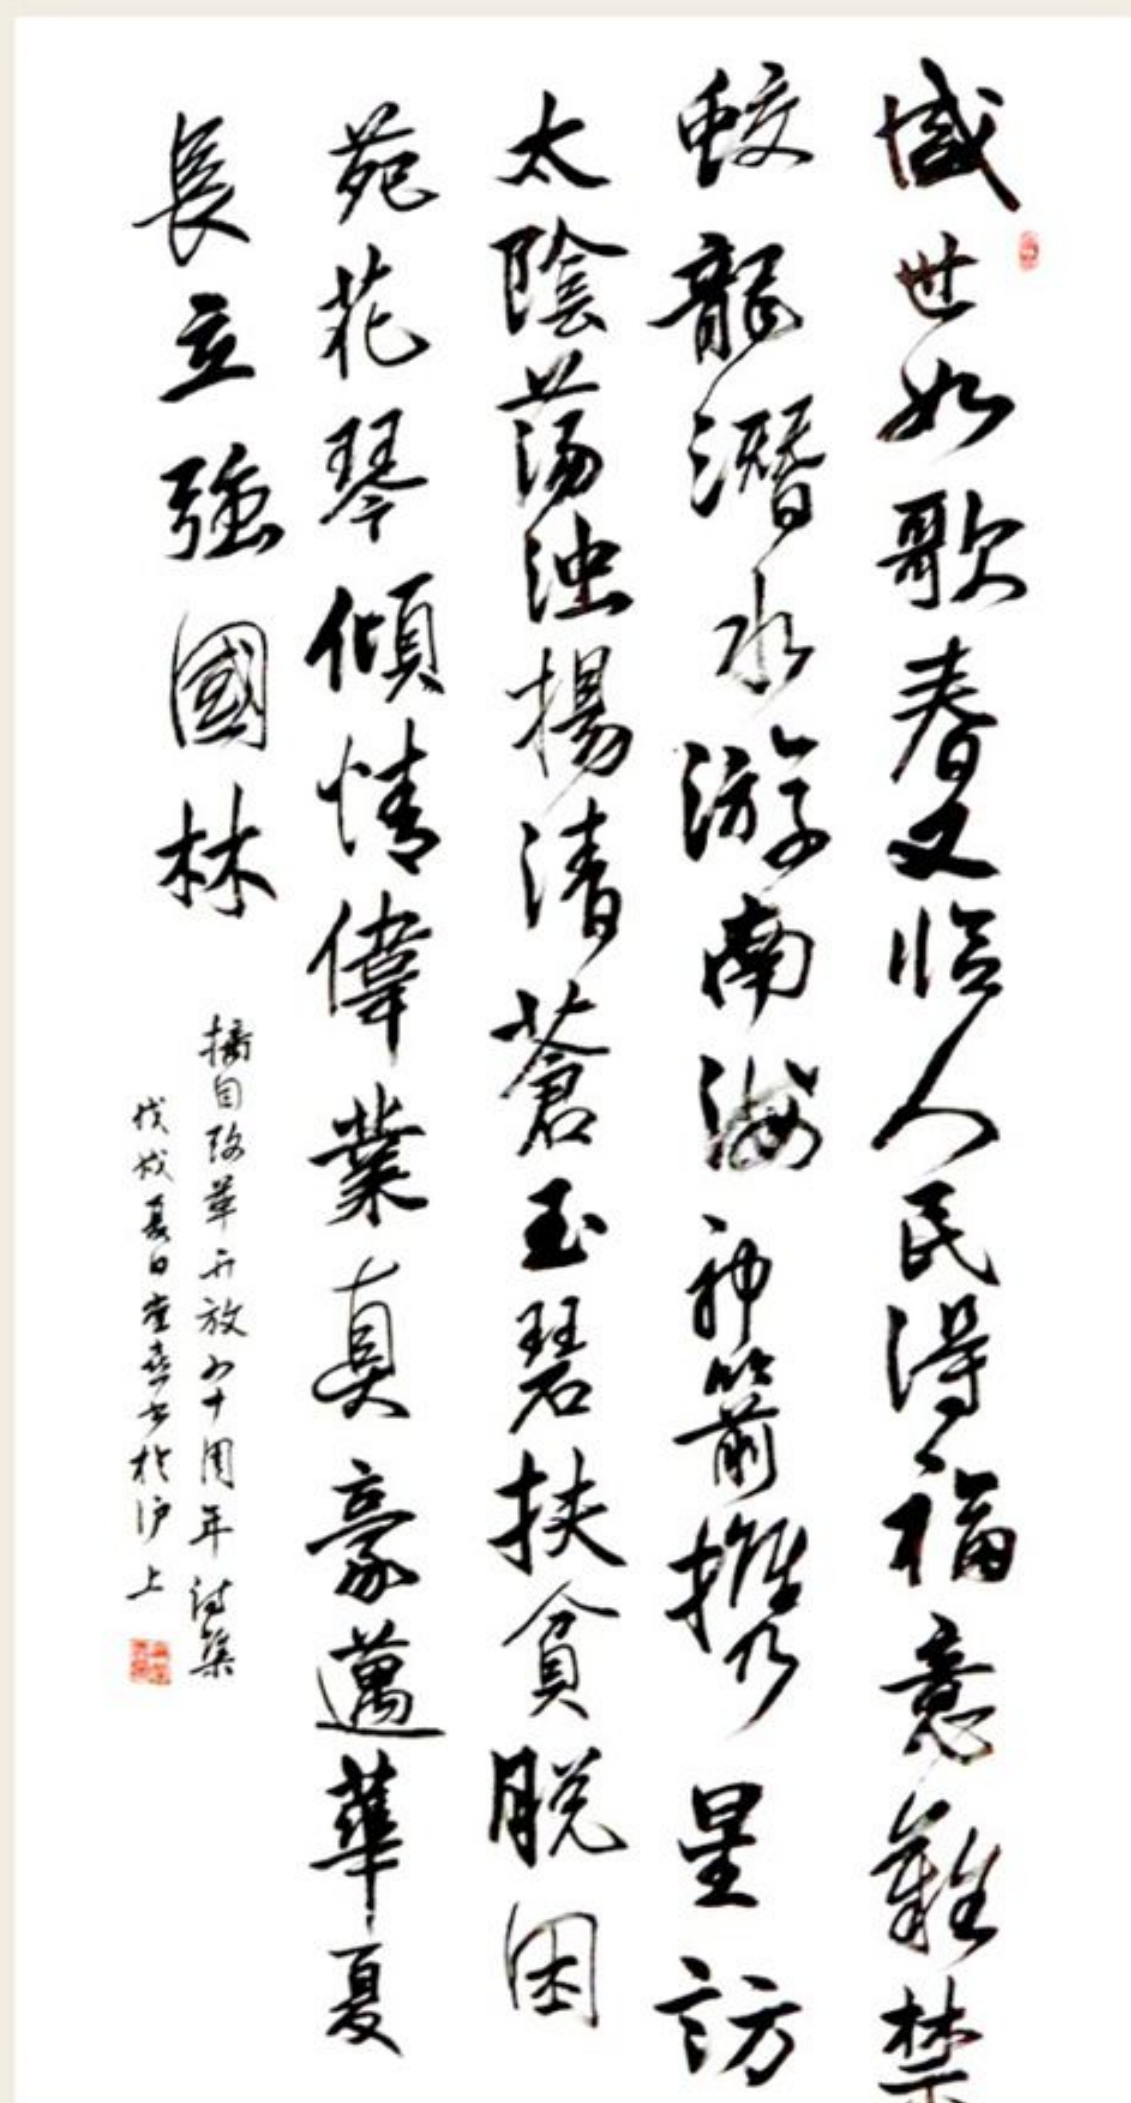 盛世如歌春又临人民得福意难禁
蛟龍潛水游南海神箭携星訪
太陰蕩浊揚清蒼玉碧扶貧脱困
苑花琴傾情偉業真豪邁華夏
長立強國林
摘自改革开放四十周年诗集
戊戌夏日 书於沪上